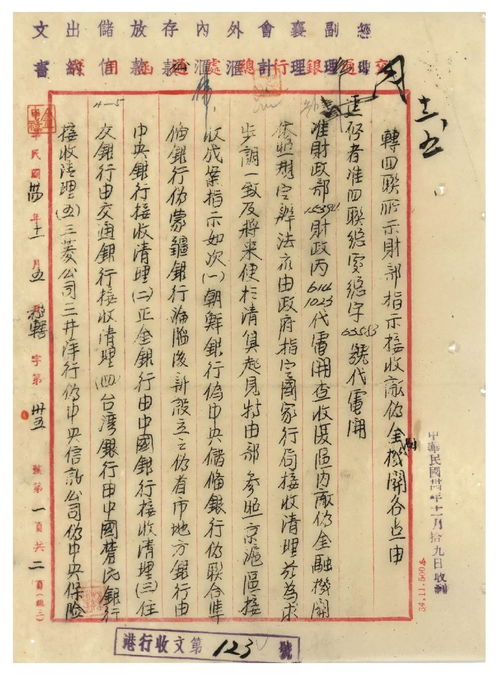 文出儲放存內外會襄副經
轉四聯所示財部指示接收敵偽金融機關各点由
逕啓者准四聯總處總字63583號代電開
准財政部 財政丙6144 1025代電開查收復區內敵偽金融機關
依照規定辦法亦由政府指定國家行局接收清理茲為求
步調一致及將來便於清算起見特由部參照京滬區接
收成案指示如次(一)朝鮮銀行偽中央儲備銀行偽聯合準
備銀行偽蒙疆銀行淪陷後新設立之偽省市地方銀行由
中央銀行接收清理(二)正金銀行由中國銀行接收清理(三)住
交銀行由交通銀行接收清理(四)台灣銀行由中國農民銀行
接收清理(五)三菱公司三井洋行偽中央信託公司偽中央保險
中華民國卅四年十一月五日 字第 卅五 號第一頁共二頁
中華民國卅四年十一月拾九日收到
港行收文第123號